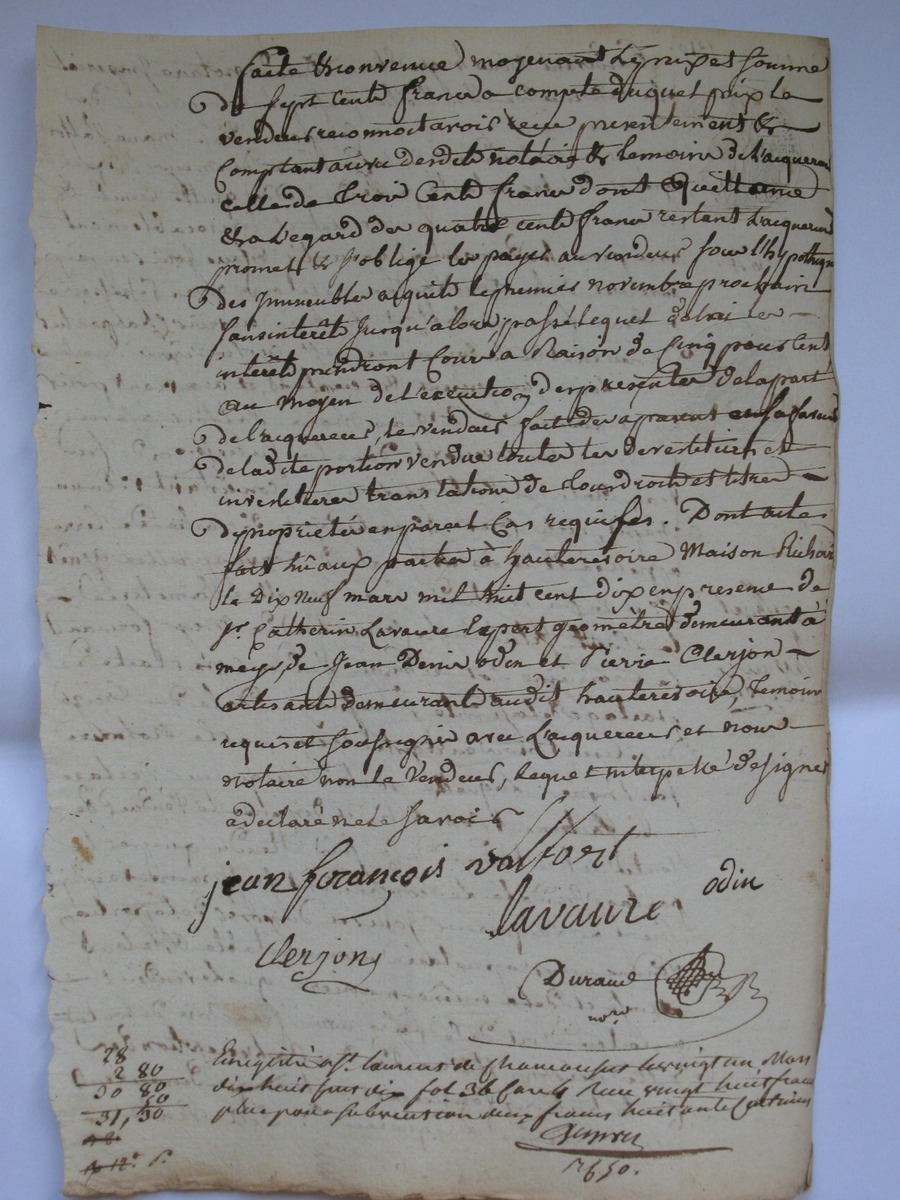 faite & convenue moyenant le prix et somme
de sept cents francs a compte duquel prix le
vendeur reconnoit avoir reçu presentement &
comptant au vu desdits notaire & temoins de l'acquereur
celle de trois cents francs dont quittance
& a l'egard des quatre cents francs restant l'acquereur
promet & s'oblige les payer au vendeur sous l'hypotheque
des immeubles acquits le premier novembre prochain
sans interêt jusqu'alors passé lequel delai les
interêts prendront cours a raison de cinq pour cent
au moyen de l'execution des presentes de la part
de l'acquereur, le vendeur fait des aparent en sa faveur
de ladite portion vendue toutes les devestitures et
investitures translations de tous droits et titres
de proprieté en pareil cas requises. Dont acte
fait lu aux parties à hauterivoire Maison Richard
le dix neuf mars mil huit cent dix en presence de
sr. Catherin Lavaure Expert géometre demeurant à
meys, de Jean Denis odin et Pierre Clerjon
artisants demeurants audit hauterivoire, temoins
requis et soussignés avec l'acquereur et nous
notaire non le vendeur, lequel interpellé de signer
a declaré ne le savoir
jean françois valfort
lavaure odin
Clerjon
Durand
nore
28
2 80
30 80
50
31,30
Enregistré a St. laurent de Chamousset le vingt un Mars
dix huit cent dix fol 36 Case Reçu vingt huit francs
plus pour subvention deux francs huitante Centimes